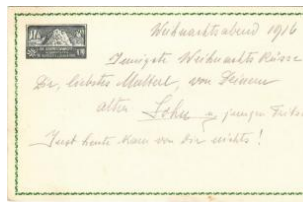 Weihnachtsabend 1916
Innigste Weihnachtsküsse
Dir, liebstes Mutterl, von Deinem
alten Sohn u. jungen
Just heute kam von Dir nichts!